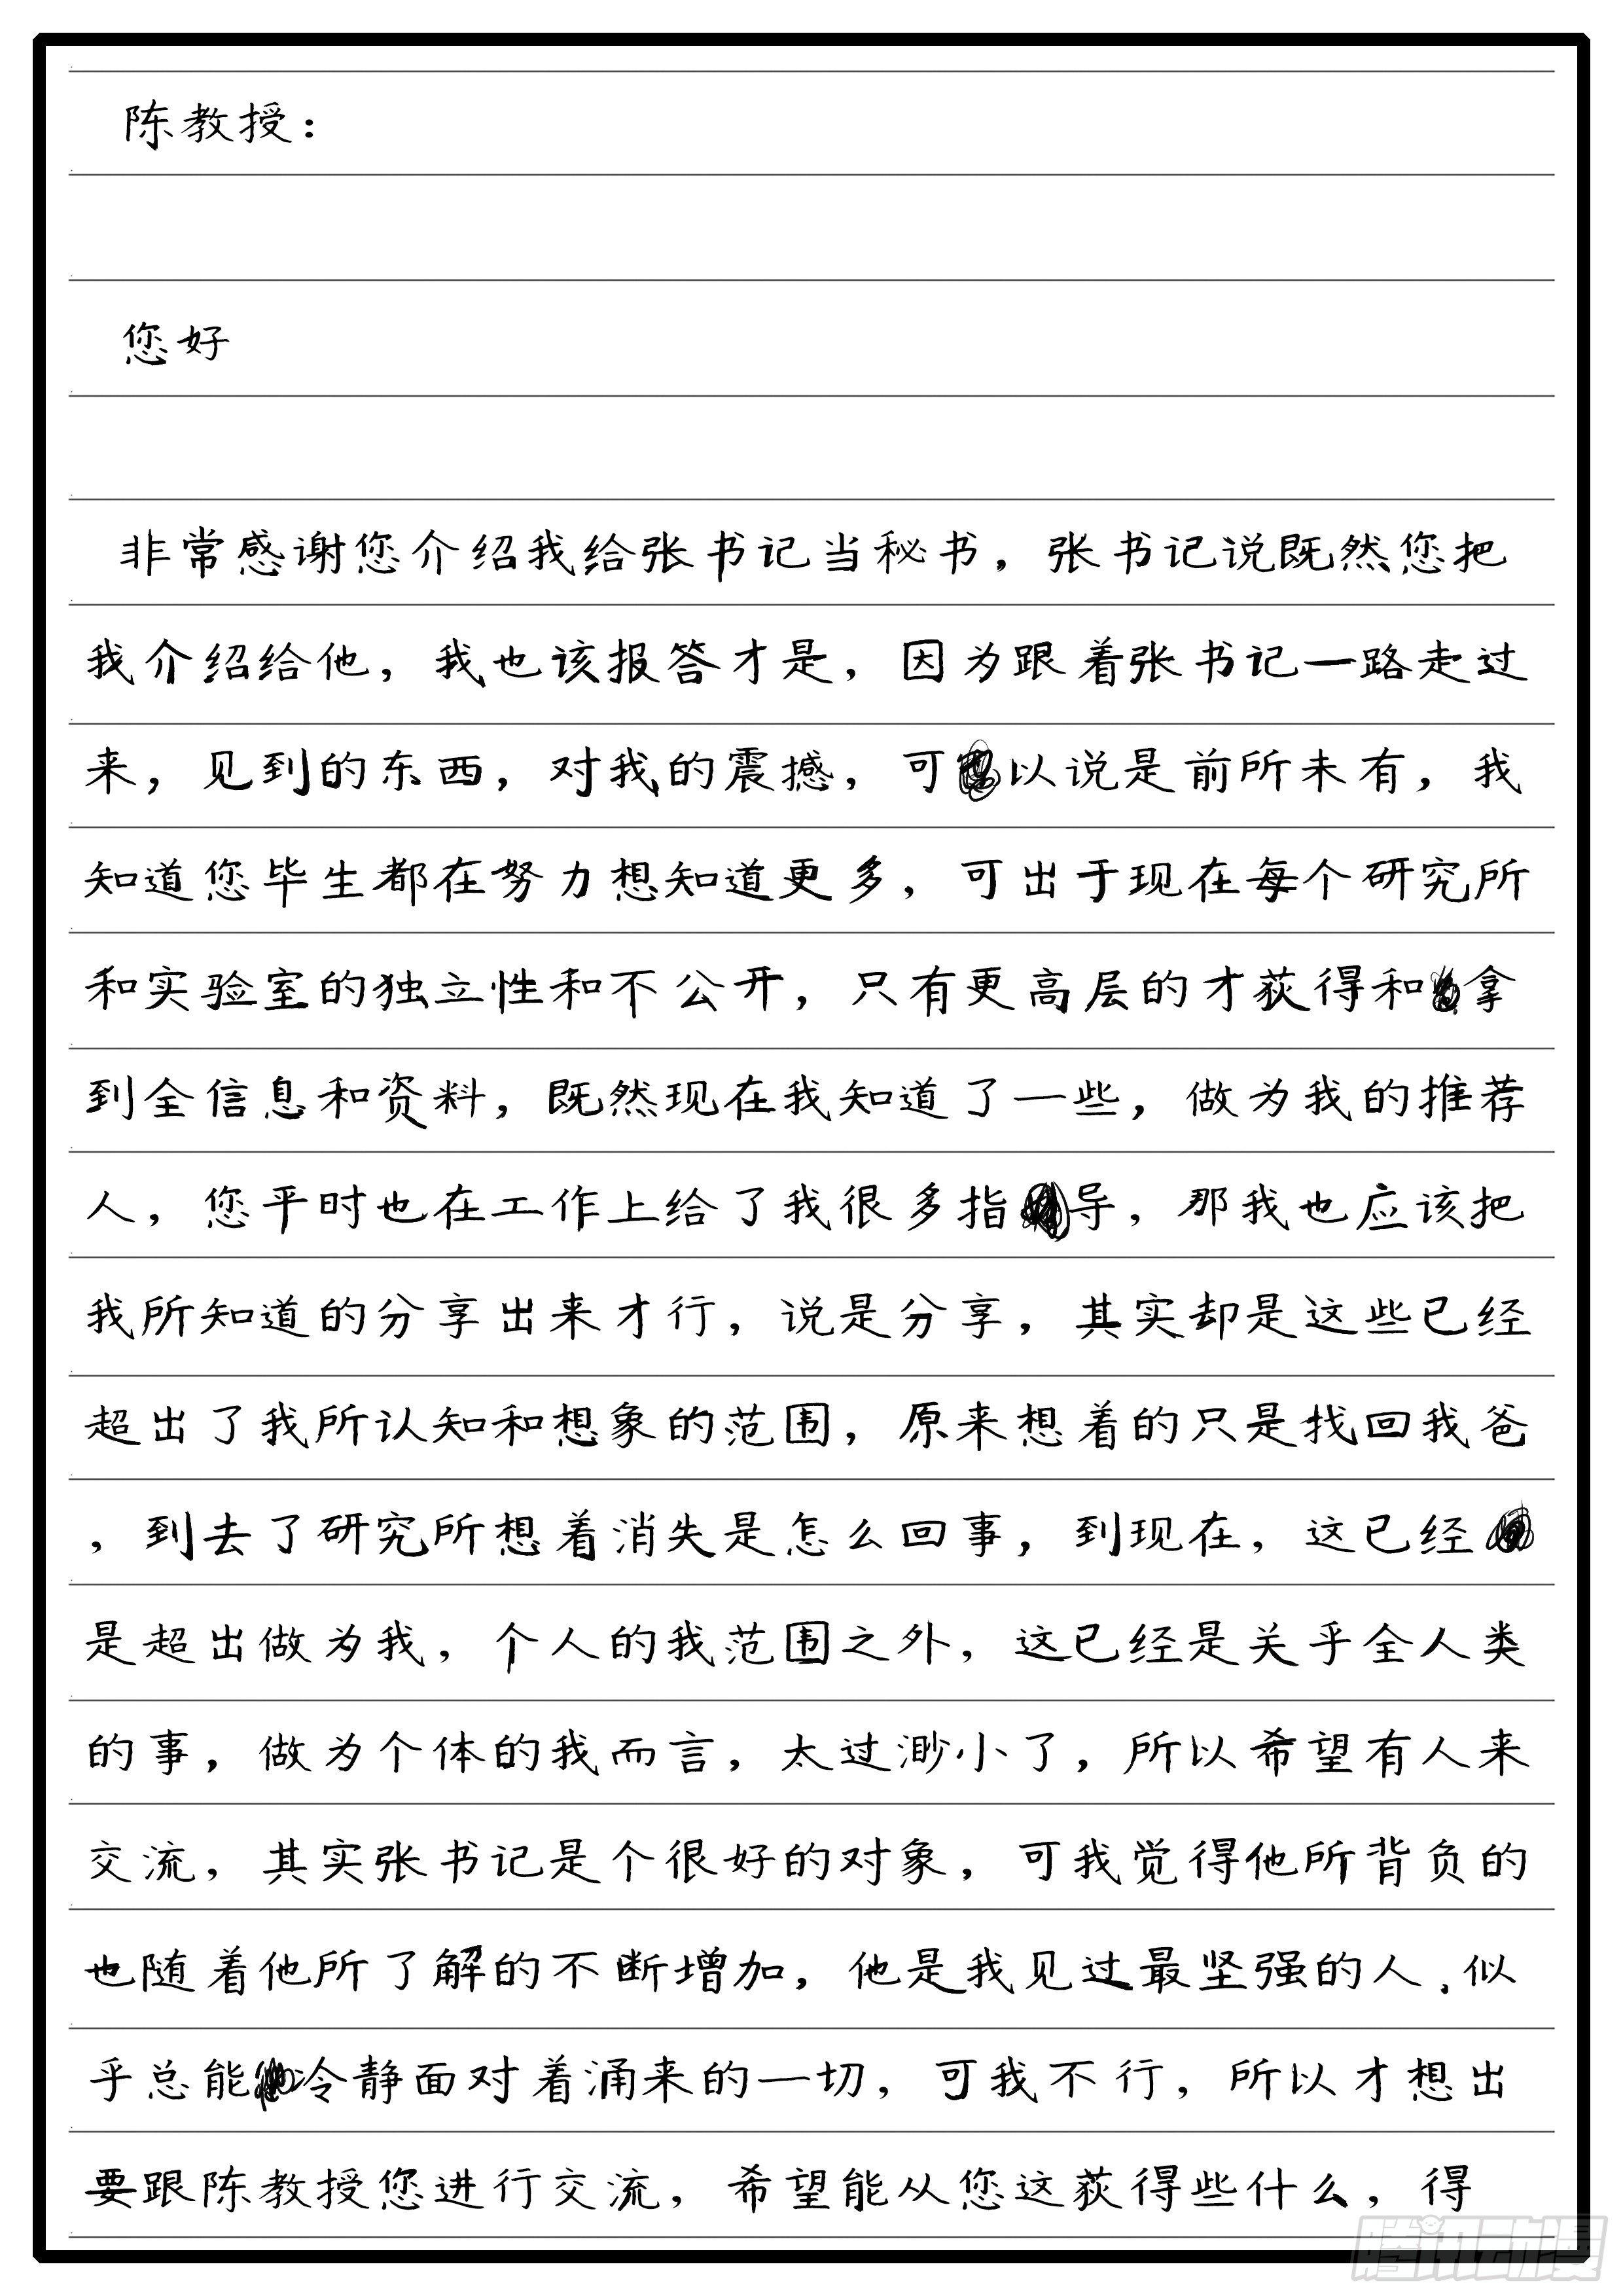 陈教授：
您好
非常感谢您介绍我给张书记当秘书，张书记说既然您把
我介绍给他，我也该报答才是，因为跟着张书记一路走过
来，见到的东西，对我的震撼，可以说是前所未有，我
知道您毕生都在努力想知道更多，可出于现在每个研究所
和实验室的独立性和不公开，只有更高层的才获得和拿
到全信息和资料，既然现在我知道了一些，做为我的推荐
人，您平时也在工作上给了我很多指导，那我也应该把
我所知道的分享出来才行，说是分享，其实却是这些已经
超出了我所认知和想象的范围，原来想着的只是找回我爸
，到去了研究所想着消失是怎么回事，到现在，这已经
是超出做为我，个人的我范围之外，这已经是关乎全人类
的事，做为个体的我而言，太过渺小了，所以希望有人来
交流，其实张书记是个很好的对象，可我觉得他所背负的
也随着他所了解的不断增加，他是我见过最坚强的人，似
乎总能冷静面对着涌来的一切，可我不行，所以才想出
要跟陈教授您进行交流，希望能从您这获得些什么，得
腾讯动漫